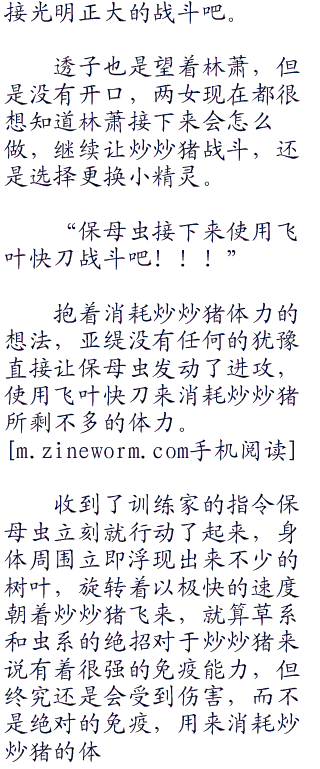 接光明正大的战斗吧。
透子也是望着林萧，但
是没有开口，两女现在都很
想知道林萧接下来会怎么
做，继续让炒炒猪战斗，还
是选择更换小精灵。
“保母虫接下来使用飞
叶快刀战斗吧！！！”
抱着消耗炒炒猪体力的
想法，亚缇没有任何的犹豫
直接让保母虫发动了进攻，
使用飞叶快刀来消耗炒炒猪
所剩不多的体力。
[m.zineworm.com手机阅读]
收到了训练家的指令保
母虫立刻就行动了起来，身
体周围立即浮现出来不少的
树叶，旋转着以极快的速度
朝着炒炒猪飞来，就算草系
和虫系的绝招对于炒炒猪来
说有着很强的免疫能力，但
终究还是会受到伤害，而不
是绝对的免疫，用来消耗炒
炒猪的体